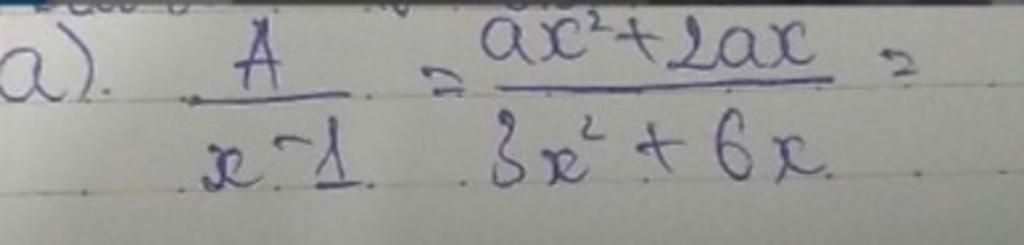 a). A / x - 1 = ax² + 2ax / 3x² + 6x =